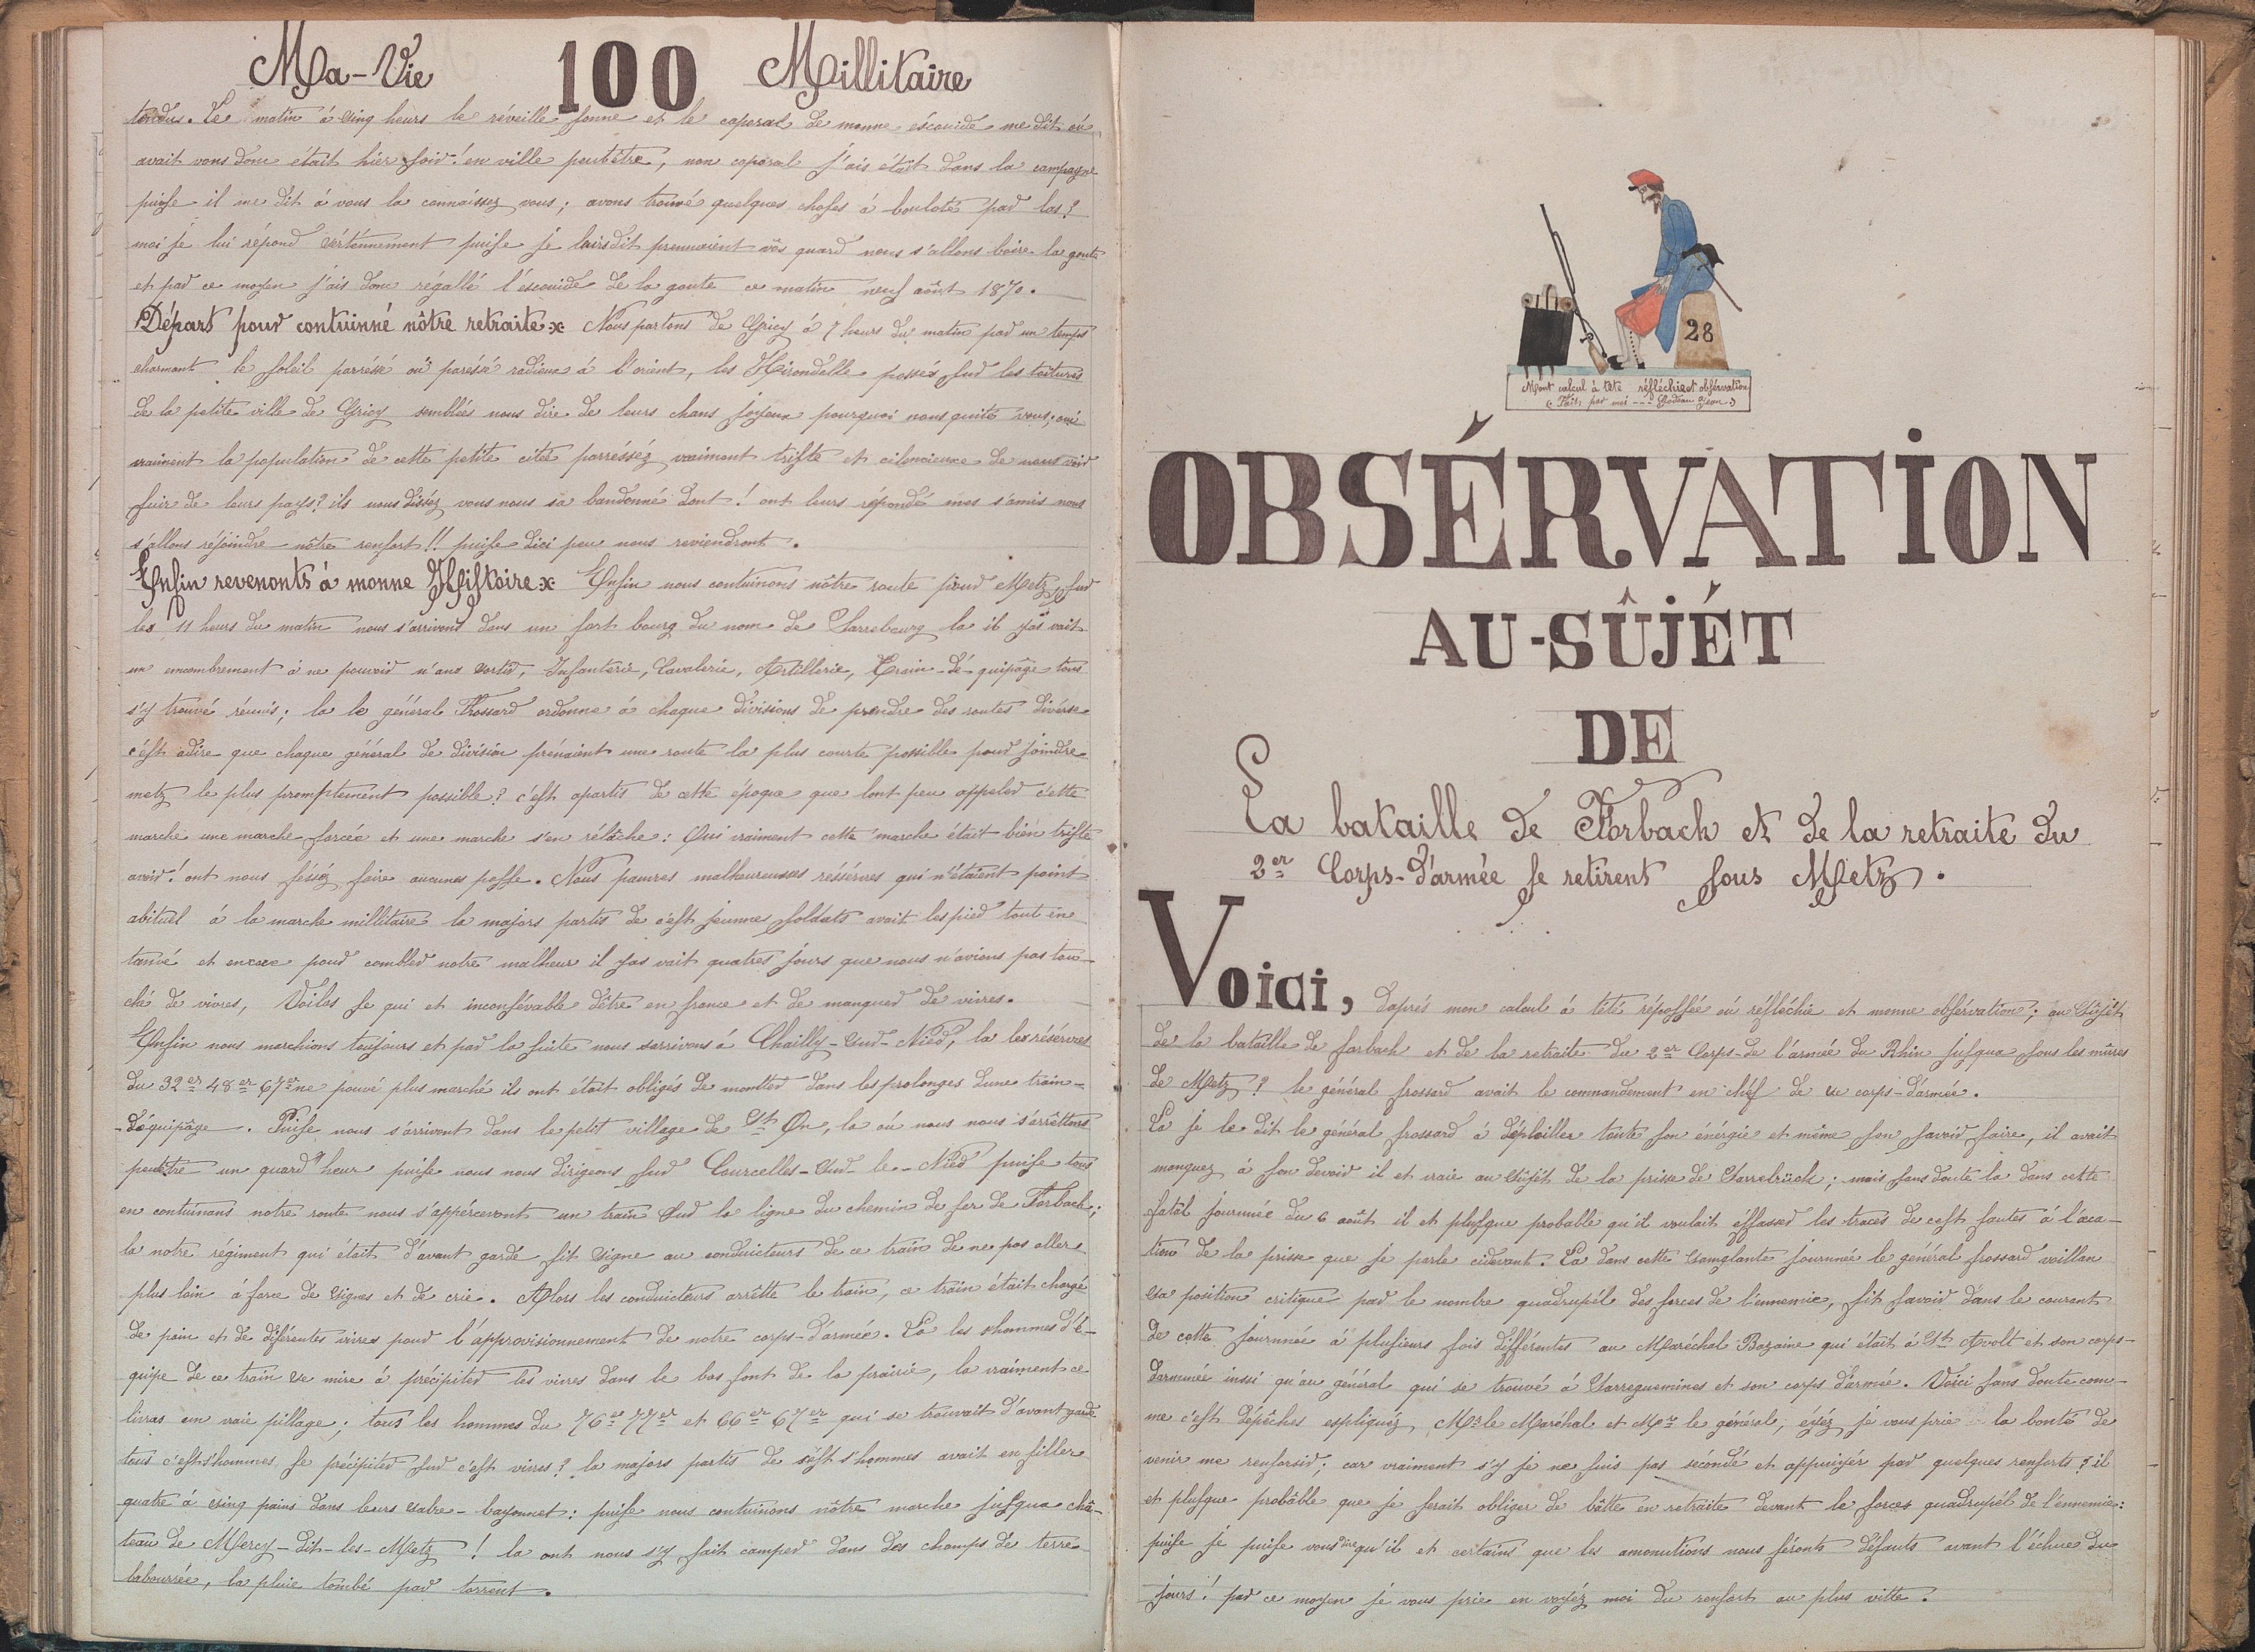 Ma-Vie 100 Millitaire
tendus. Le matin à cinq heurs le réveille sonne et le caporal de monne éscouide me dit où
avait vous donc était hiér soir! en ville peutêtre, non caporal j'ais étôt dans la campagne
puise il me dit à vous la connaissez vous; avons trouvé quelques choses à bouloté pad las?
moi je lui répond cértènnement puise je luisdit prennaient vôs quard nous s'allons boire la goute
et pad ce moyen j'ais donc régallé l'escouide de la goute ce matin neuf août 1870.
Départ pour contuinné nôtre retraite x Nous partons de Gricy à 7 heurs du matin pad un temps
charmant le soleil parrésé où parésé radieux à l'orient, les Hirondelle possés sud les toitures
de la petite ville de Gricy semblées nous dire de leurs chans joyeux pourquoi nous quité vous, oui
vraiment la population de cette petite citée parrésséz vraiment triste et cilencieuse de nous voir
fuir de leurs pays? ils nous disséz vous nous sa bandonné dont! ont leurs répondé mes s'amis nous
s'allons réjoindre nôtre renfort!! puise dici peu nous reviendront.
Enfin revenonts à monne Histoire x Enfin nous contuinons nôtre route pour Metz, sud
les 11 heurs du matin nous s'arrivons dans un fort bourg du nom de Sarrebourg la il y'as vait
un encombrement à ne pouvoir n'ans sortir, Infanterie, Cavalerie, Artillerie, Train-dé-quipage tous
s'y trouvé réunis; la le général Frossard ordonne à chaque divisions de prendre des routes diverse
c'ést adire que chaque général de division prénaient une route la plus courte possible pour joindre
metz le plus premptement possible? c'est apartis de cette époque que lont peu appeler cette
marche une marche forcée et une marche s'en rélâche: Oui vraiment cette marche était bien triste
avoir! ont nous féséz faire aucunes posse. Nous pauvres malheureuses réssérves qui n'étaient point
abituél à la marche millitaire la majors partis de c'est jeunnes soldats avait les pied tout én
tamé et encore pour combler notre malheur il yas vait quatres jours que nous n'avions pas tou-
ché de vivres, Voilas se qui et inconsévable dêtre en france et de manquer de vivres.
Enfin nous marchions toujours et pad la suite nous sarrivons à Chailly-sud-Nied, la les résérves
du 32er 48er 67er ne pouvé plus marché ils ont étôt obligés de monter dans les prolonges dune train-
-déquipâge. Puise nous s'arrivont dans le petit village de St On, la où nous nous s'arrêttons
peutêtre un quard heur puise nous nous dirigeons sud Courcelles-sud-le-Nied puise tous
en contuinans notre route nous s'appérceront un train sud la ligne du chemin de fer de Forbach;
la notre régiment qui était d'avant garde fit signe au conduicteurs de ce train de ne pas aller
plus loin à force de signes et de crie. Alors les conduicteurs arrêtte le train, ce train était chargé
de pain et de diférentes vivres pour l'approvisionnement de notre corps-d'armée. La les shommes d'é-
quipe de ce train se mire à précipiter les vivres dans le bas font de la prairie, la vraiment ce
livras un vraie pillage; tous les hommes du 76er 77er et 66er 67er qui se trouvait d'avant garde
tous c'est s'hommes se précipiter sud c'est vivres? la majors partis de sést s'hommes avait en filler
quatre à cinq pains dans leurs sabre-bayonnet: puise nous contuinons nôtre marche jusqua châ-
teau de Mercy-dit-les-Metz! la ont nous s'y fait camper dans des champs de terre
labourrée, la pluie tombé pad torrent.
28
Mont calcul à tété réfléchieet obsérvation
(Fait: par moi --- Godeau Jean.)
OBSÉRVATION
AU-SÛJÉT
DE
La bataille de Forbach et de la retraite du
2er Corps-d'armée se retirent sous Metz.
Voici, daprés mon calcul à tété réposée où réfléchie et monne obsérvation; au sûjét
de la bataille de forbach et de la retraite du 2er Corps-de l'armée du Rhin jusqua sous les mûres
de Metz? le général frossard avait le commandement en chéf de se corps-d'armée.
La je le dit le général frossard à déploiller toute son énérgie et même son savoir faire, il avait
manquez à son devoir il et vraie au sûjét de la prise de Sarrebrück; mais sans doute la dans cette
fatâl journnée du 6 août il et plusque probable qu'il voulait éffasser les traces de cest fautes à l'aca-
tion de la prise que je parle cidevant. La dans cette sanglante journnée le général frossard voillan
sa position critique pad le nombre quadrupél des forces de l'ennemie, fit savoir dans le courent
de cette journnée à plusieurs fois différentes au Maréchal Bazaine qui était à St Avolt et son corps-
darmmée insi qu'au général qui se trouvé à Sarreguemines et son corps d'armée. Voici sans doute com-
me c'est dépêches espliquéz Mr le Maréhal et Mer le général, éyéz je vous prie la bonté de
venir me renforsir; car vraiment s'y je ne suis pas sécondé et appuiyér pad quelques renforts? il
et plusque probâble que je serait obliger de bâtte en retraite devant le forces quadrupél de l'ennemie:
puise je puise vous dire qu'il et certains que les amonutions nous féronts défauts avant l'échue du
jours! pad ce moyen je vous prie en voyéz moi du renfort au plus vitte.